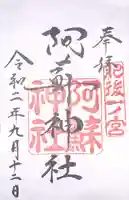 奉拝
肥後一宮
阿蘇神社
阿蘇神社
令和二年九月十二日